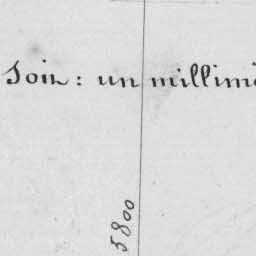 Soin : un millim
5800